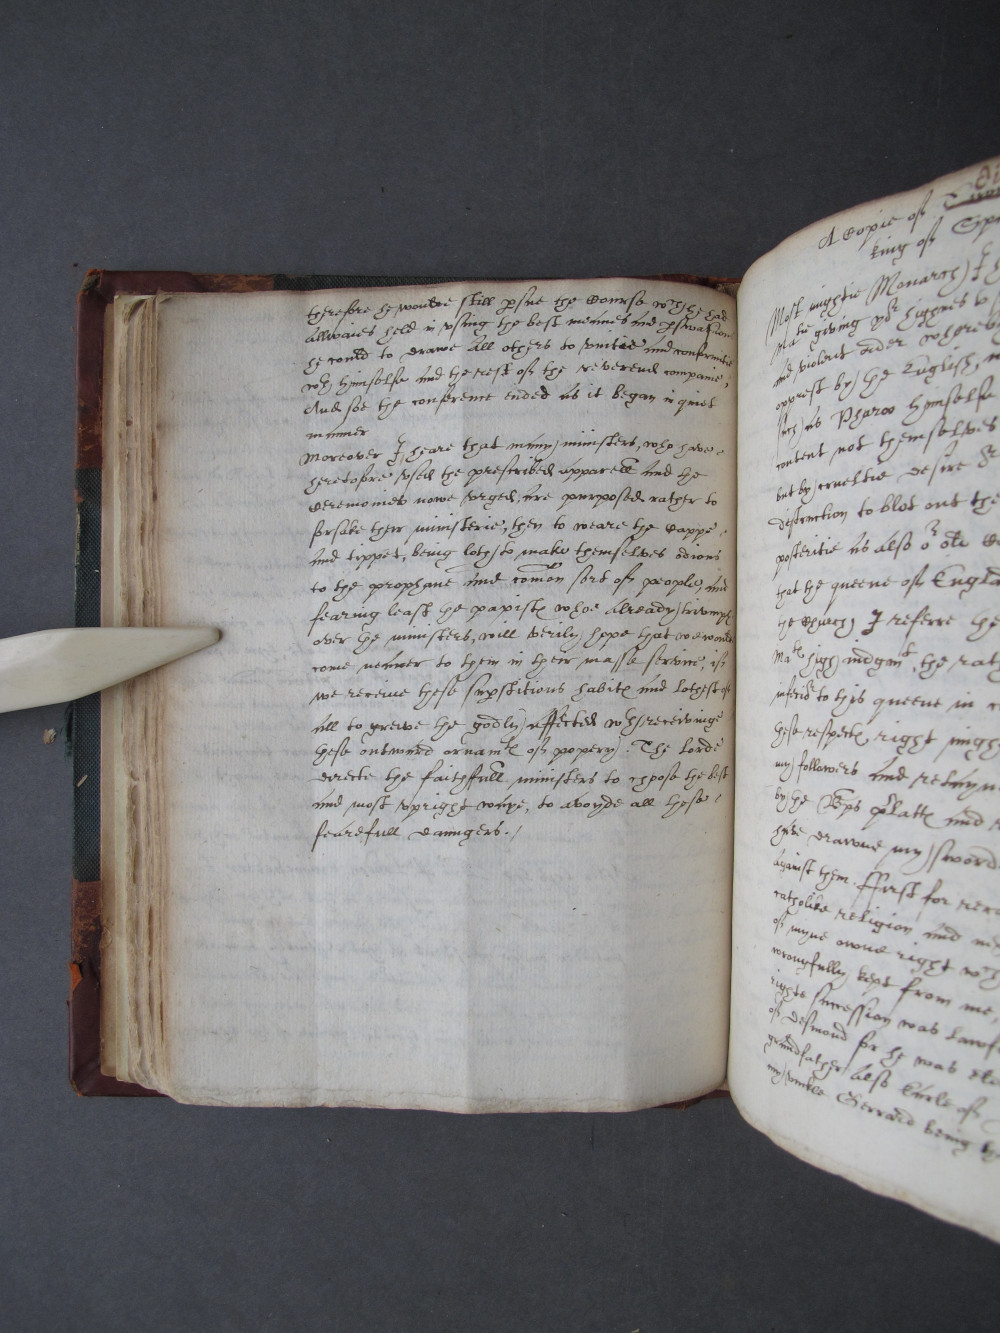 therefore he would still psue the Course wch he had
allwaies held in vsing the best meanes and pswasions
he could to drawe all others to vnitie and conformitie
wth himselfe and the rest of the reverend companie,
And soe the conference ended as it began in quiet
manner
Moreover I heare that many ministers, who have
heretofore vsed the prescribed apparell and the
ceremonies nowe vrged, are purposed rather to
forsake their ministerie, then to weare the Cappe
and tippet, being loth to make themselves odious
to the prophane and comon sort of people, and
fearing least the papists whoe allready triumph
over the ministers, will verily hope that we would
come neerer to them in their masse service, if
we receive these supstitious habits and lothest of
all to greive the godly affected wth receivinge
these outward ornamts of popery. The Lorde
directe the faithfull ministers to chose the best
and most vpright waye, to avoyde all these
fearefull daungers./
A Copie of
King of Sp
Most mightie Monarch I h
ma be giving yor highnes v
and violent order wherev
opprest by the English, n
such as Pharao himselfe
content not themselves
but by crueltie desire
distruction to blot out the
posteritie as also or old
that the queene of England
the Church I referre he
Matie high iudgmt, the rat
inferior to this queene in c
these respects, right might
my followers and retayn
by the platt and
have drawne my sword
against them. ffirst for re
catholike religion and ne
of myne owne right wch
wrongfully kept from me,
righte succession was lawf
of Desmond for he was el
grandfather also Earle of
my vnkle Gerrard being